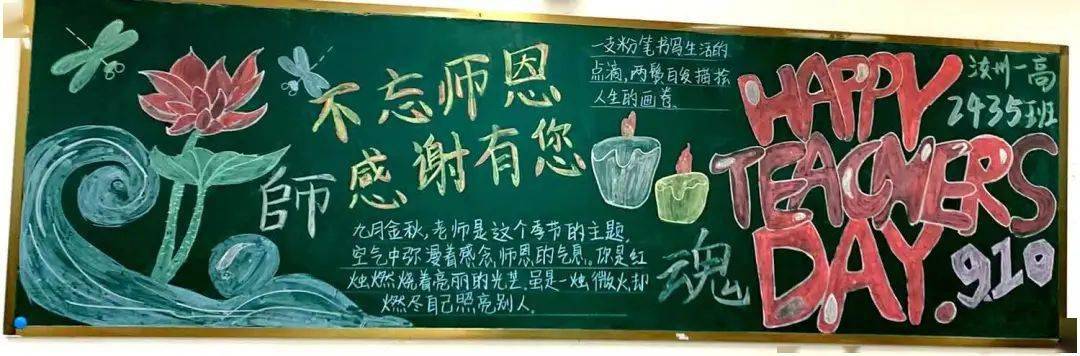 不忘师恩
感谢有您
師
魂
一支粉笔书写生活的
点滴,两鬓白发描绘
人生的画卷。
九月金秋,老师是这个季节的主题,
空气中弥漫着感念师恩的气息。你是红
烛燃烧着亮丽的光芒,虽是一烛微火却
燃尽自己照亮别人。
HAPPY
TEACHERS
DAY.
910
汝州一高
2435班